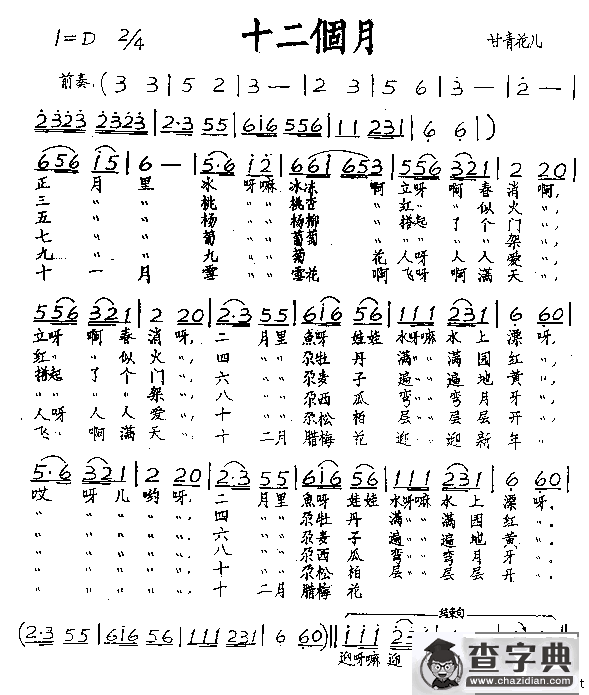 1=D 2/4 十二個月 甘青花儿
前奏: (3 3 | 5 2 | 3 — | 2 3 | 5 6 | 3 — | 2 — |
2323 2323 | 2·3 55 | 616 556 | 111 231 | 6 6 )
656 15 | 6 — | 5·6 12 | 661 653 | 5·6 321 | 2 20 |
正 月 里 冰 呀嘛 冰冻 啊 立呀 啊 春 消 啊,
三 〃 〃 桃 〃〃 桃杏 〃 红〃 〃 似 火 〃,
五 〃 〃 杨 〃〃 杨柳 〃 搭起 了 个 门 〃,
七 〃 〃 葡 〃〃 葡萄 〃 〃〃 〃 〃 架 〃,
九 〃 〃 九 〃〃 菊 花 人呀 人 人 爱 〃,
十 一 月 雪 〃〃 雪花 啊 飞呀 啊 满 天 〃,
5·6 321 | 2 20 | 2·3 55 | 616 56 | 111 231 | 6 60 |
立呀 啊 春 消 呀, 二 月里 魚呀 娃娃 水呀嘛 水 上 漂 呀,
红〃 〃 似 火 〃, 四 〃〃 尕牡 丹 满〃〃 满 园 红 〃,
搭起 了 个 门 〃, 六 〃〃 尕麦 子 遍〃〃 遍 地 黄 〃,
〃〃 〃 〃 架 〃, 八 〃〃 尕西 瓜 弯〃〃 弯 月 牙 〃,
人呀 人 人 爱 〃, 十 〃〃 尕松 柏 层〃〃 层 层 开 〃,
飞〃 啊 满 天 〃, 十 二月 腊梅 花 迎〃〃 迎 新 年 〃,
5·6 321 | 2 20 | 2·3 55 | 616 56 | 111 231 | 6 60 |
哎 呀 儿 哟 呀, 二 月里 魚呀 娃娃 水呀嘛 水 上 漂 呀.
〃 〃 〃 〃 〃, 四 〃〃 尕牡 丹 满〃〃 满 园 红 〃.
〃 〃 〃 〃 〃, 六 〃〃 尕麦 子 遍〃〃 遍 地 黄 〃.
〃 〃 〃 〃 〃, 八 〃〃 尕西 瓜 弯〃〃 弯 月 牙 〃.
〃 〃 〃 〃 〃, 十 〃〃 尕松 柏 层〃〃 层 层 开 〃.
〃 〃 〃 〃 〃, 十 二月 腊梅 花
结束句
(2·3 55 | 616 56 | 111 231 | 6 60 ) || 111 231
迎呀嘛 迎
查字典
www.chazidian.com